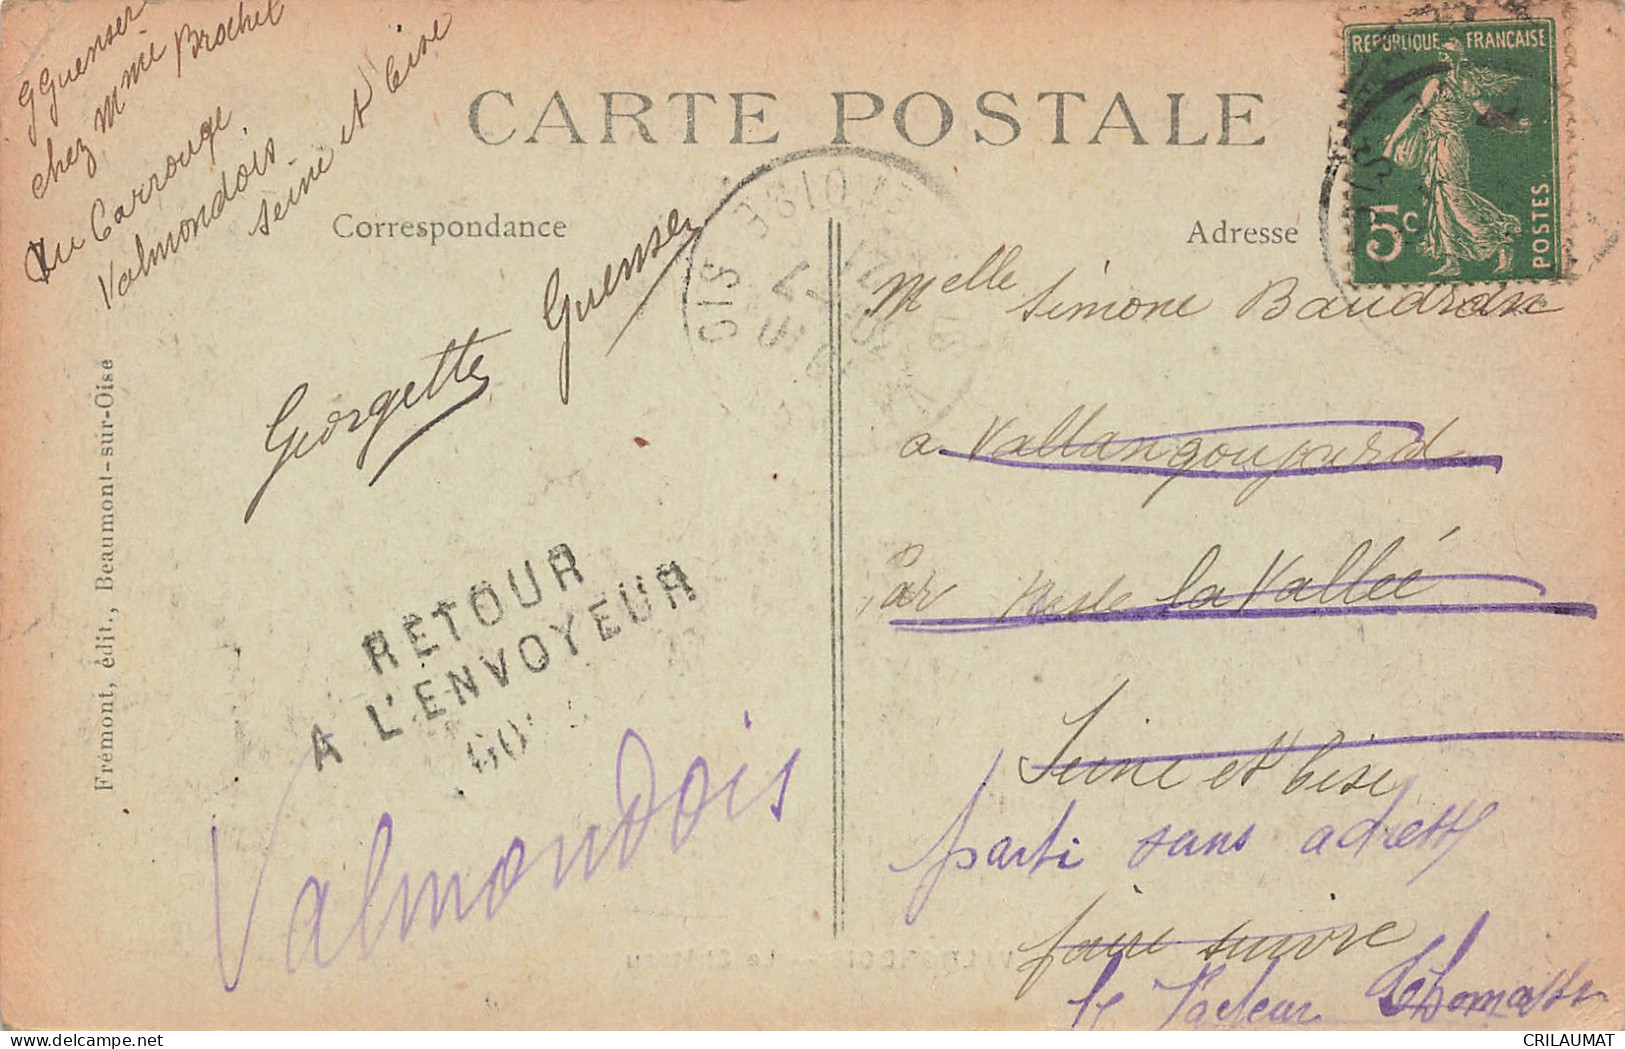 GGuenser
chez Mme Brochet
Au Carrouge
Valmondois
Seine et Oise
CARTE POSTALE
Correspondance
Adresse
REPUBLIQUE FRANÇAISE
5c
POSTES
Georgette Guenser
Melle Simone Baudran
a Vallangoujard
Par Nesle la Vallée
Seine et Oise
parti sans adresse
faire suivre
le facteur
RETOUR
A L'ENVOYEUR
Valmondois
Frémont, édit., Beaumont-sur-Oise
CRILAUMAT